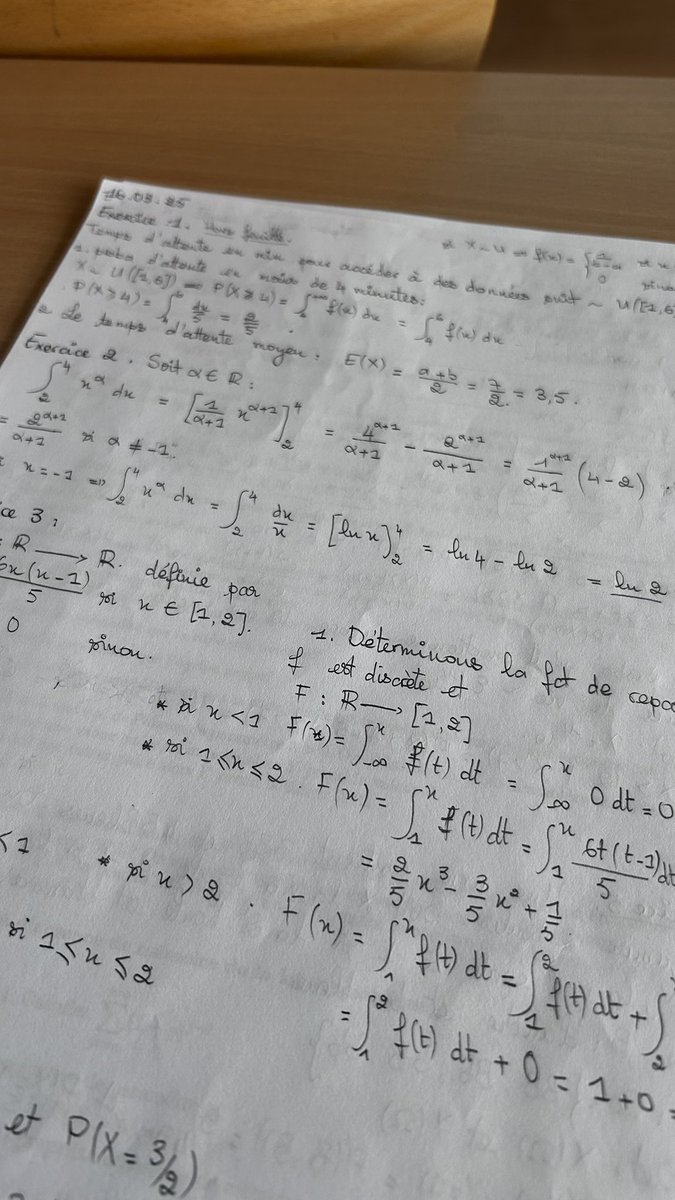 16.03.25
Exercice 1. Vers feuille.
si X ~ U ⇒ f(x) = { 1/b-a si x
0 sinon
Temps d'attente en min pour accéder à des données suit ~ U([1,6]
1. proba d'attente en moins de 4 minutes:
X ~ U([1,6]) ⇒ P(X ≥ 4) = ∫_4^{+∞} f(x) dx = ∫_4^6 f(x) dx
P(X ≥ 4) = ∫_4^6 dx/5 = 2/5
2 Le temps d'attente moyen : E(X) = a+b/2 = 7/2 = 3,5.
Exercice 2. Soit α ∈ R :
∫_2^4 x^α dx = [1/α+1 x^{α+1}]_2^4 = 4^{α+1}/α+1 - 2^{α+1}/α+1 = 1^{α+1}/α+1 (4-2)
= 2^{α+1}/α+1 si α ≠ -1.
x = -1 ⇒ ∫_2^4 x^α dx = ∫_2^4 dx/x = [ln x]_2^4 = ln 4 - ln 2 = ln 2
ice 3 :
: R → R. définie par
6x(x-1)/5 si x ∈ [1,2].
0 sinon.
1. Déterminons la fct de
f est discrète et
F : R → [1,2]
* si x < 1 F(x) = ∫_{-∞}^x f(t) dt = ∫_{-∞}^x 0 dt = 0
* si 1 ≤ x ≤ 2. F(x) = ∫_1^x f(t) dt = ∫_1^x 6t(t-1)/5 dt
= 2/5 x³ - 3/5 x² + 1/5.
< 1 * si x > 2. F(x) = ∫_1^x f(t) dt = ∫_1^2 f(t) dt + ∫_2
si 1 ≤ x ≤ 2
= ∫_1^2 f(t) dt + 0 = 1+0 =
et P(X = 3/2)